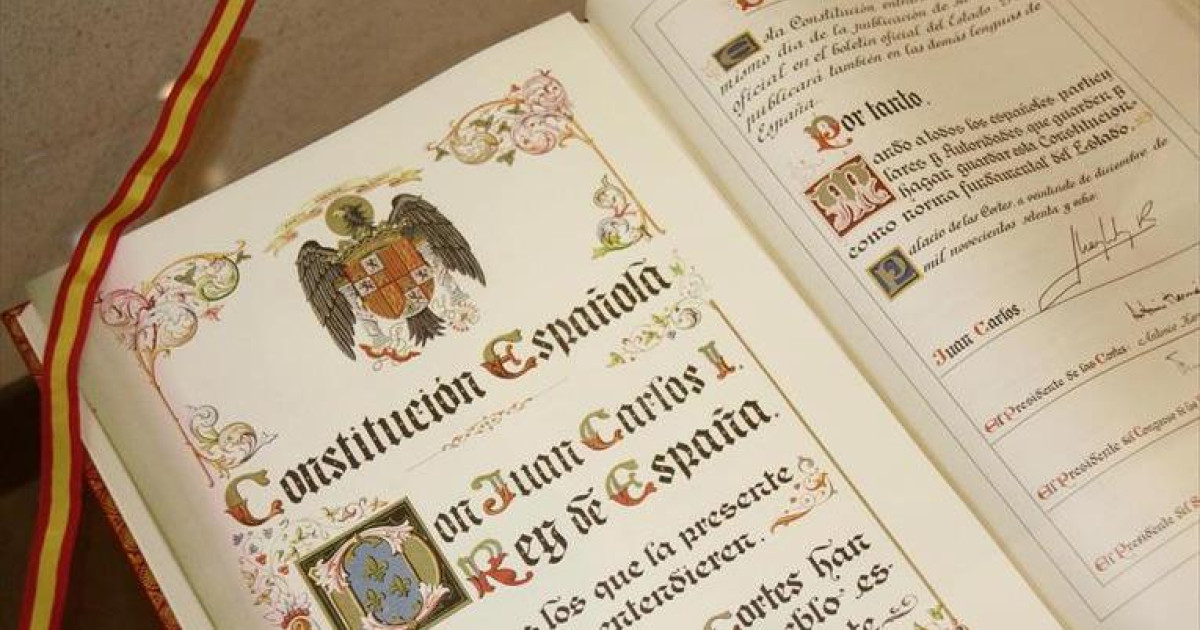 Constitución Española
Don Juan Carlos I.
Rey de España.
los que la presente
entendieren.
Cortes han
es-
Esta Constitución
mismo día de la publicación de su
oficial en el boletín oficial del Estado.
publicará también en las demás lenguas de
España.
Por tanto.
Mando a todos los españoles particu
lares y Autoridades que guarden y
hagan guardar esta Constitución
como norma fundamental del Estado.
Palacio de las Cortes, a veintisiete de diciembre de
mil novecientos setenta y ocho.
Juan Carlos.
El Presidente de las Cortes. Antonio
El Presidente del Congreso
El Presidente del